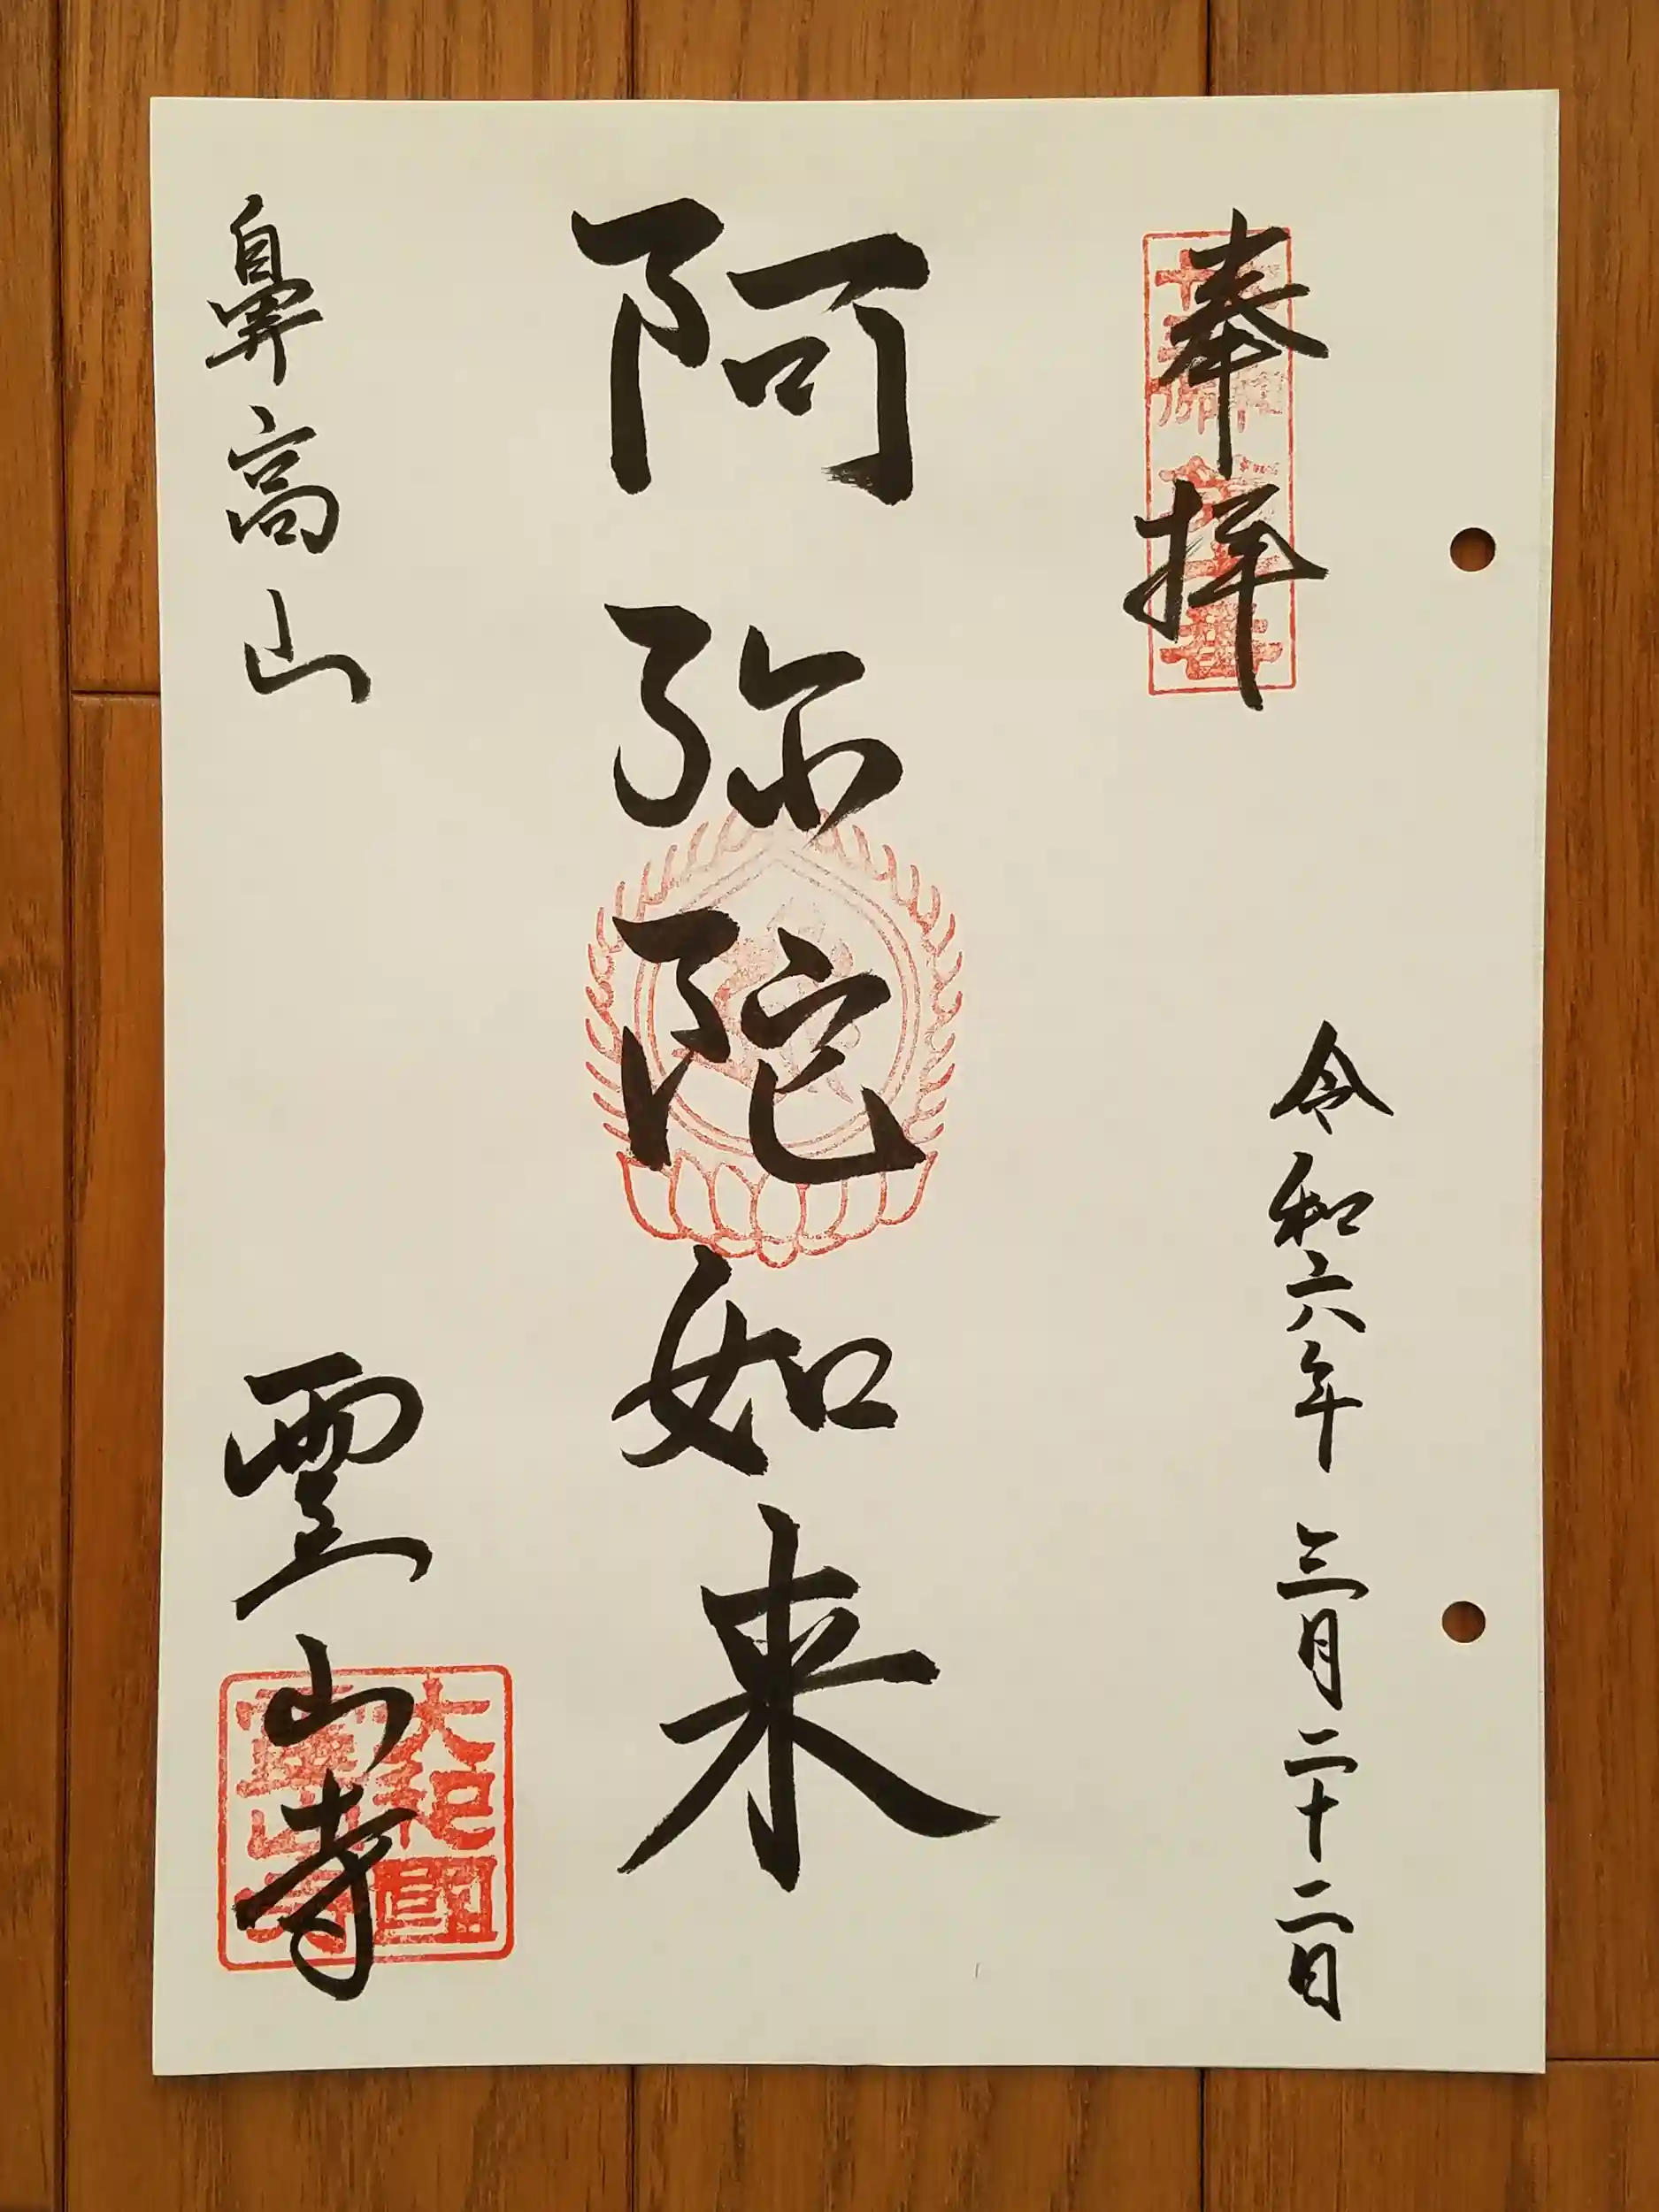 奉拝
令和六年 三月二十二日
阿弥陀如来
鼻高山
霊山寺
大和国
霊山寺